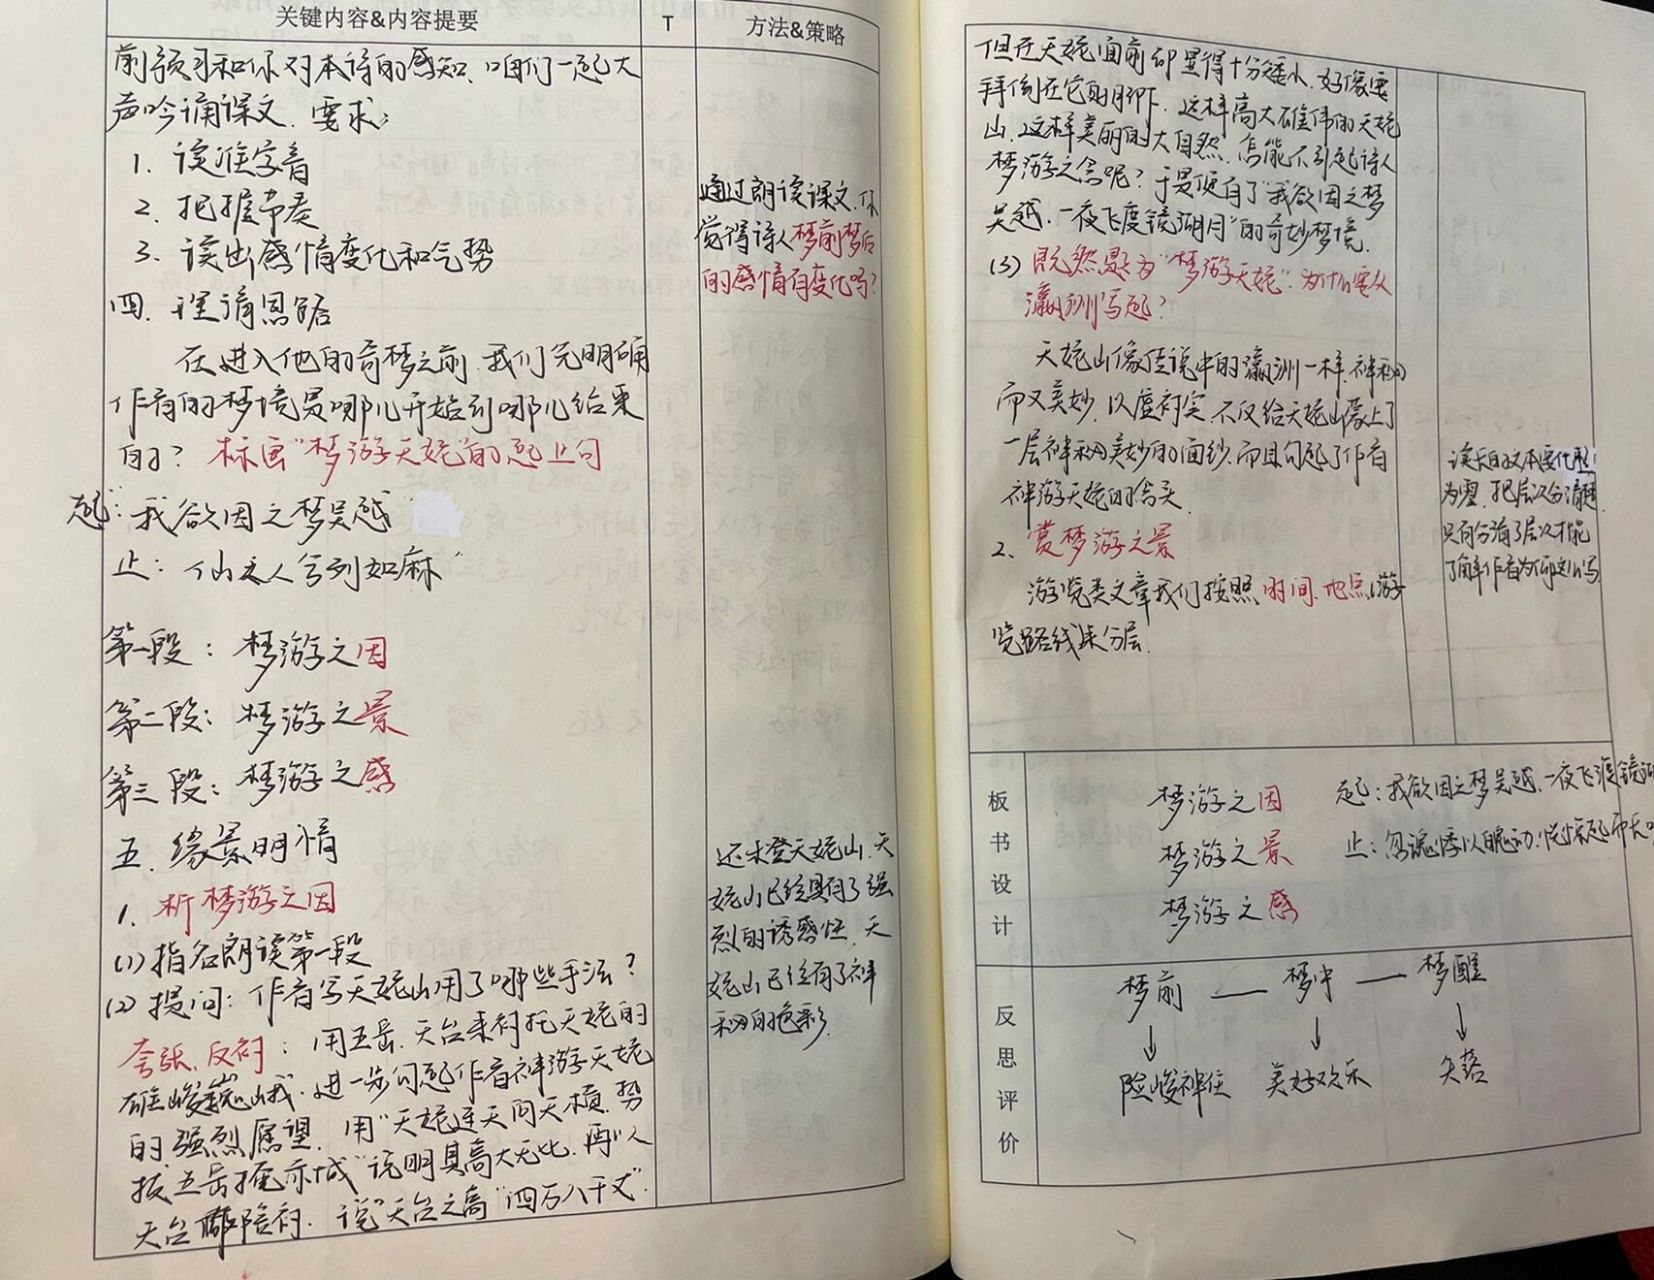 关键内容&内容提要
T
方法&策略
前预习和你对本诗的感知,咱们一起大
声吟诵课文.要求:
1. 读准字音
2. 把握节奏
3. 读出感情变化和气势
四. 理清思路
在进入他的奇梦之前,我们先明确
作者的梦境是哪儿开始到哪儿结束
的?标画“梦游天姥”的起止句
起:我欲因之梦吴越
止:仙之人兮列如麻
第一段:梦游之因
第二段:梦游之景
第三段:梦游之感
五. 缘景明情
1. 析梦游之因
(1)指名朗读第一段
(2)提问:作者写天姥山用了哪些手法?
夸张.反衬:用五岳.天台来衬托天姥的
雄峻巍峨.进一步勾起作者神游天姥
的强烈愿望.用“天姥连天向天横.势
拔五岳掩赤城”说明其高大无比.再以
天台陪衬.说“天台之高“四万八千丈”.
通过朗读课文.你
觉得诗人梦前梦后
的感情有变化吗?
还未登天姥山.天
姥山已经具有了强
烈的诱惑性.天
姥山已经有了神
秘的色彩.
但在天姥面前却显得十分矮小.好像要
拜倒在它的脚下.这样高大雄伟的天姥
山.这样美丽的大自然.怎能不引起诗人
梦游之念呢?于是便有了“我欲因之梦
吴越.一夜飞度镜湖月”的奇妙梦境.
(3)既然题为“梦游天姥”.为什么要从
瀛洲写起?
天姥山像传说中的瀛洲一样.神秘
而又美妙.以虚衬实.不仅给天姥山蒙上了
一层神秘美妙的面纱.而且勾起了作者
神游天姥的念头.
2. 赏梦游之景
游览类文章我们按照时间.地点.游
览路线来分层.
读长的文本要化整
为零.把层次分清楚
只有分清了层次才能
了解作者为何这么写
板书设计
梦游之因
梦游之景
梦游之感
起:我欲因之梦吴越.一夜飞渡镜湖
止:忽魂悸以魄动.恍惊起而长
反思评价
梦前 — 梦中 — 梦醒
↓ ↓ ↓
险峻神往 美好欢乐 失落